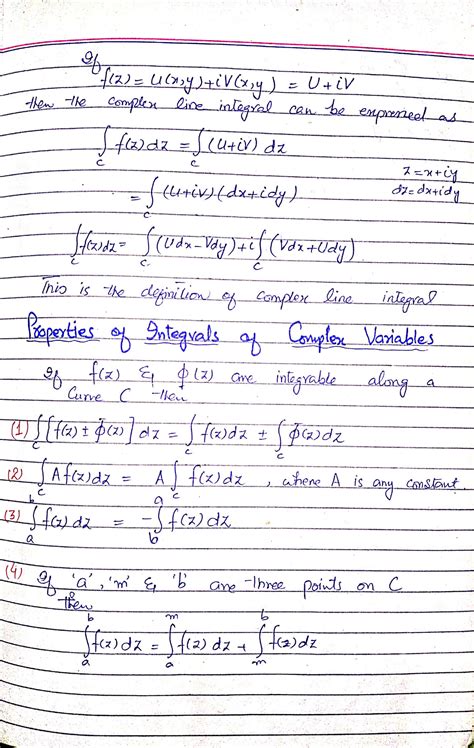 If
f(z) = U(x,y) + iV(x,y) = U + iV
then the complex line integral can be expressed as
∫_C f(z) dz = ∫_C (U+iV) dz
z = x+iy
= ∫_C (U+iV) (dx+idy)
dz = dx+idy
∫_C f(z) dz = ∫_C (Udx - Vdy) + i∫_C (Vdx + Udy)
This is the definition of complex line integral
Properties of Integrals of Complex Variables
If f(z) & Φ(z) are integrable along a
Curve C then
(1) ∫_C [f(z) ± Φ(z)] dz = ∫_C f(z) dz ± ∫_C Φ(z) dz
(2) ∫_C A f(z) dz = A ∫_C f(z) dz , where A is any constant.
(3) ∫_a^b f(z) dz = -∫_b^a f(z) dz
(4) If 'a', 'm' & 'b' are three points on C
then
∫_a^b f(z) dz = ∫_a^m f(z) dz + ∫_m^b f(z) dz